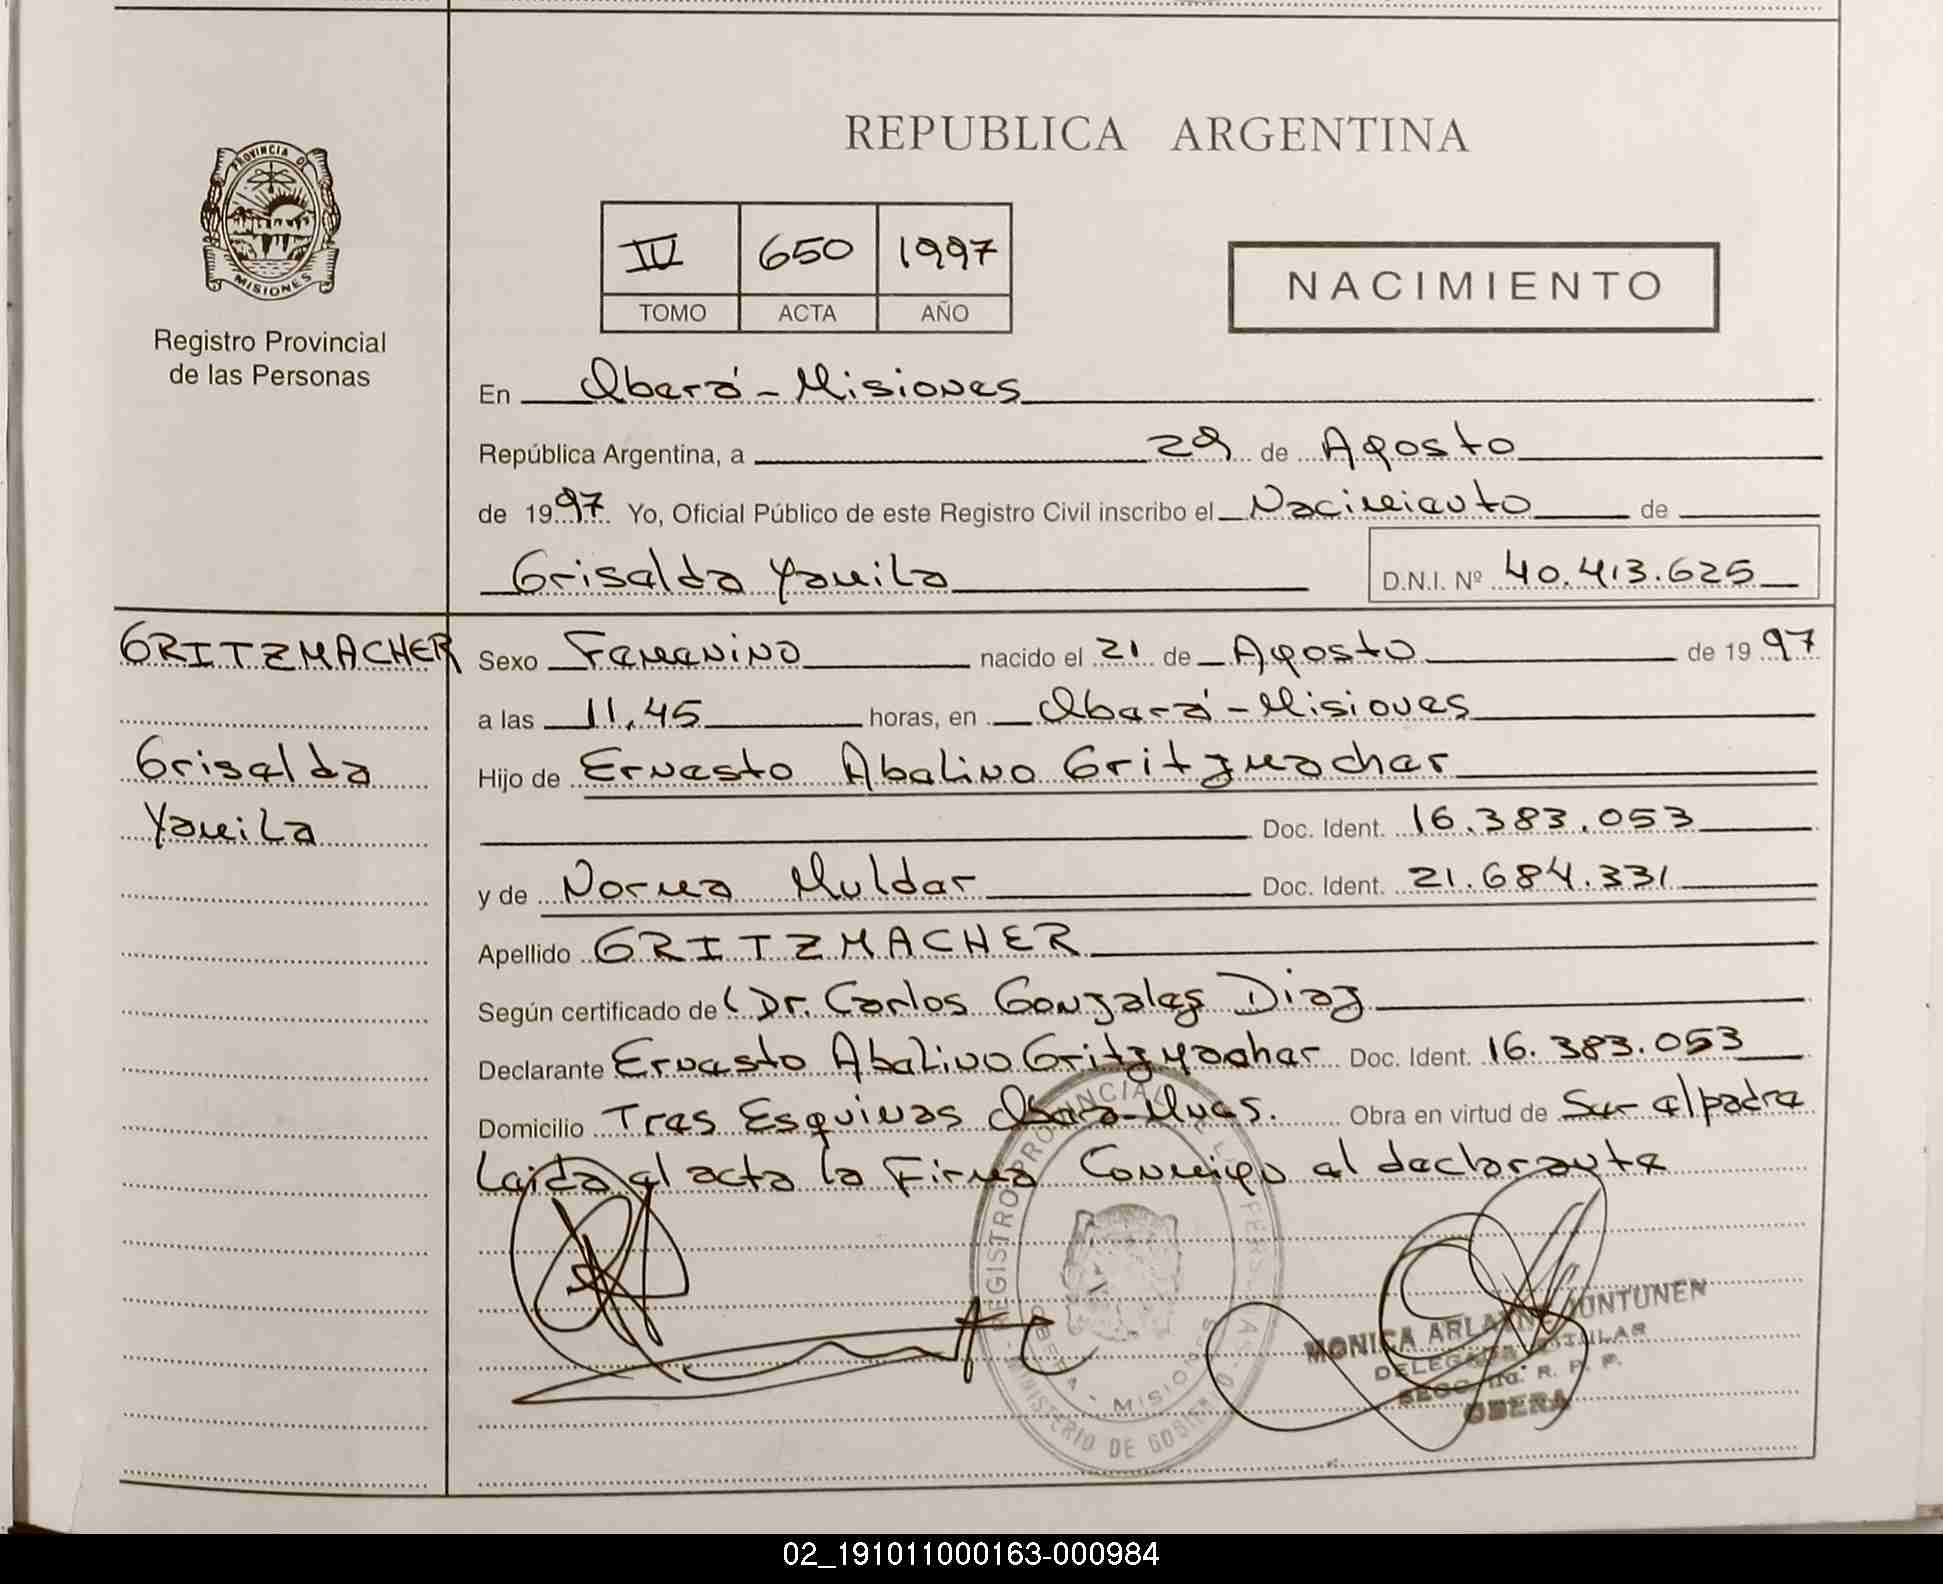 REPUBLICA ARGENTINA
PROVINCIA DE
MISIONES
Registro Provincial
de las Personas
IV 650 1997
TOMO ACTA AÑO
NACIMIENTO
En Oberá - Misiones
República Argentina, a 29 de Agosto
de 1997 Yo, Oficial Público de este Registro Civil inscribo el Nacimiento de
Griselda Yamila D.N.I. Nº 40.413.625
GRITZMACHER
Griselda
Yamila
Sexo Femenino nacido el 21 de Agosto de 1997
a las 11,45 horas, en Oberá - Misiones
Hijo de Ernesto Abelino Gritzmacher
Doc. Ident. 16.383.053
y de Norma Mulder Doc. Ident. 21.684.331
Apellido GRITZMACHER
Según certificado de Dr. Carlos Gonzales Diaz
Declarante Ernesto Abelino Gritzmacher Doc. Ident. 16.383.053
Domicilio Tres Esquinas Oberá-Mnes. Obra en virtud de Ser el padre
Leida el acta la Firma Conmigo el declarante
REGISTRO PROVINCIAL DE LAS PERSONAS
OBERA - MISIONES
MINISTERIO DE GOBIERNO
MONICA ARLAINE JUNTUNEN
DELEGADA TITULAR
SECC. R. P. P.
OBERA
02_191011000163-000984